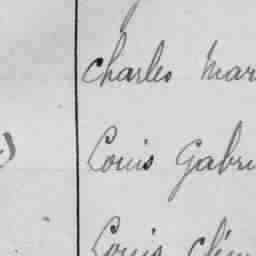 Charles Mar
Louis Gabri
Louis Clém